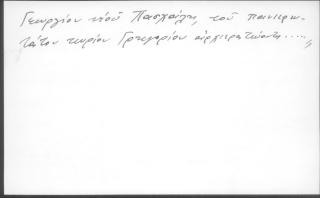 Γεωργίου υἱοῦ Πασχάλη, τοῦ πανιερω-
τάτου κυρίου Γρηγορίου ἀρχιερατεύοντος.....,